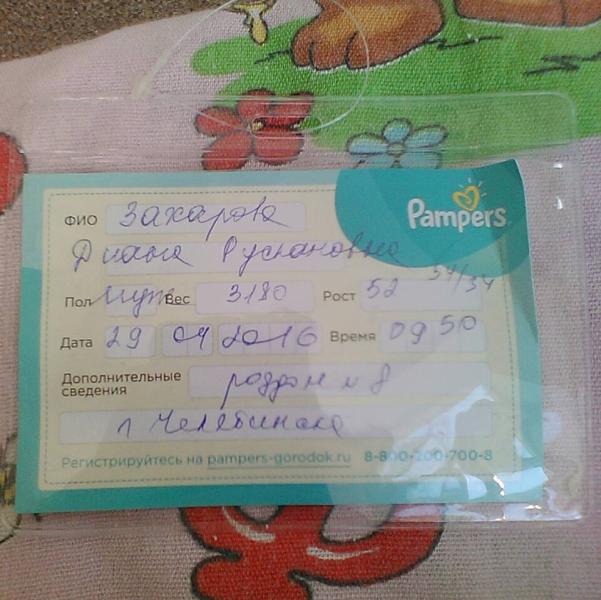 Pampers
ФИО Захарова
Диана Руслановна
Пол муж Вес 3180 Рост 52 34/34
Дата 29 04 2016 Время 09 50
Дополнительные сведения роддом н 8
г Челябинска
Регистрируйтесь на pampers-gorodok.ru 8-800-200-700-8